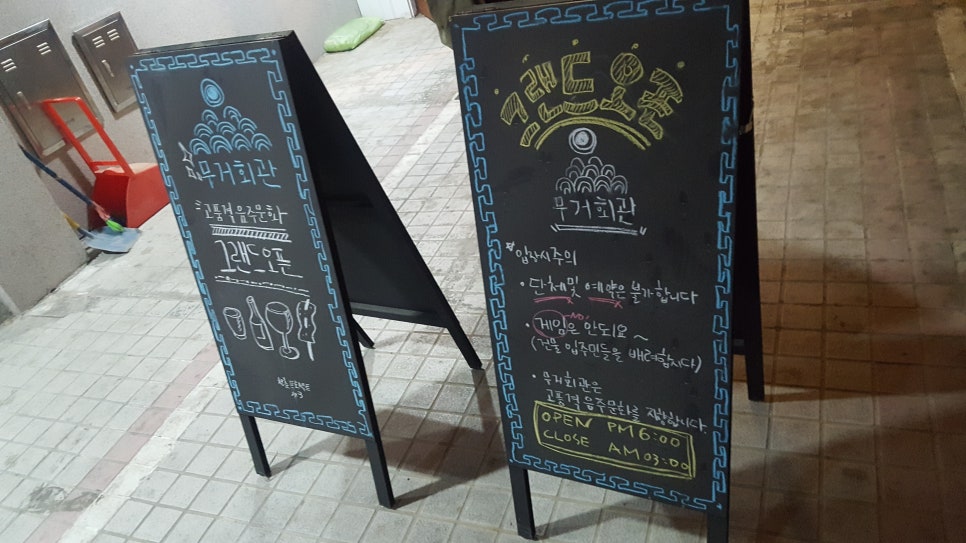 무거회관
고품격 음주문화
그랜드오픈
그랜드오픈
무거회관
입장시주의
단체및 예약은 불가합니다
게임은 안되요~
NO!
(건물 입주민들을 배려합시다)
무거회관은
고품격 음주문화를 지향합니다.
OPEN PM 6:00
CLOSE AM 03:00